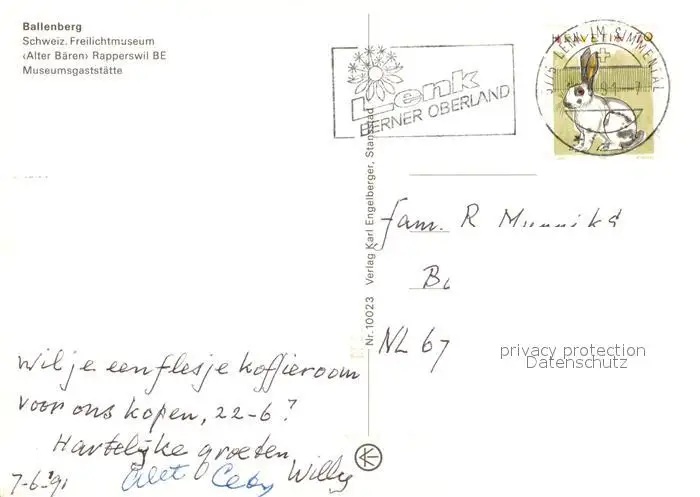 Ballenberg
Schweiz. Freilichtmuseum
‹Alter Bären› Rapperswil BE
Museumsgaststätte
Lenk
BERNER OBERLAND
HELVETIA 70
3775 LENK IM SIMMENTAL
Nr. 10023 Verlag Karl Engelberger, Stansstad
fam. R
NL 67
privacy protection
Datenschutz
wil je een flesje koffieroom
voor ons kopen, 22-6?
Hartelijke groeten
Willy
7-6-'91